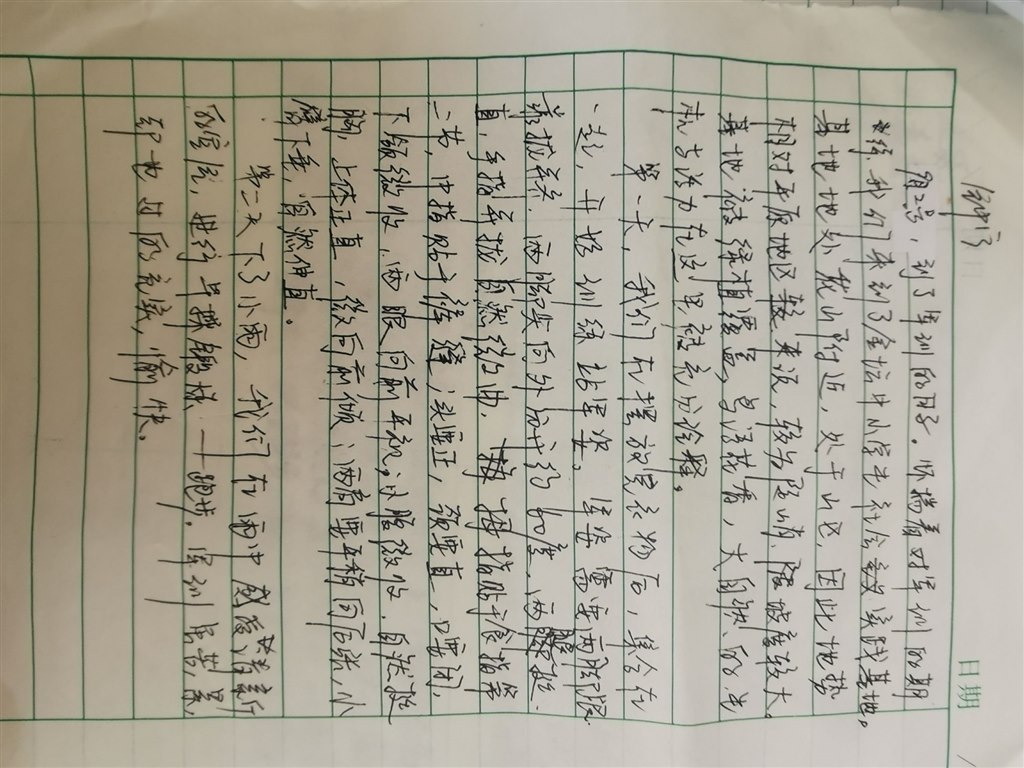 日期
军训
到了军训的日子。怀揣着对军训的期
待,我们来到了金法中小学生社会教实践基地。
基地地处九龙山附近,处于山区,因此地势
相对平原地区较来说,较为险峭、陡坡度较大。
基地有绿植覆盖,生活着,大自然的生
机与活力在这里被充分诠释。
第一天,我们在摆放完衣物后,集合在
一起,开始训练站军姿。军姿需要两脚跟
靠拢并齐,两脚尖向外分开约60度,两腿挺
直,手指并拢自然弯曲,拇指贴于食指第
二节,中指贴于裤缝;头要正,颈要直,口要闭,
下颌微收,两眼向前平视;小腹微收,自然挺
胸,上体正直,微向前倾;两肩要平稍向后张,小
臂下垂,自然伸直。
第二天下了小雨,我们在雨中感受着清新
的空气,进行军事——跑步。军训虽苦,虽累,
却也过的充实,愉快。